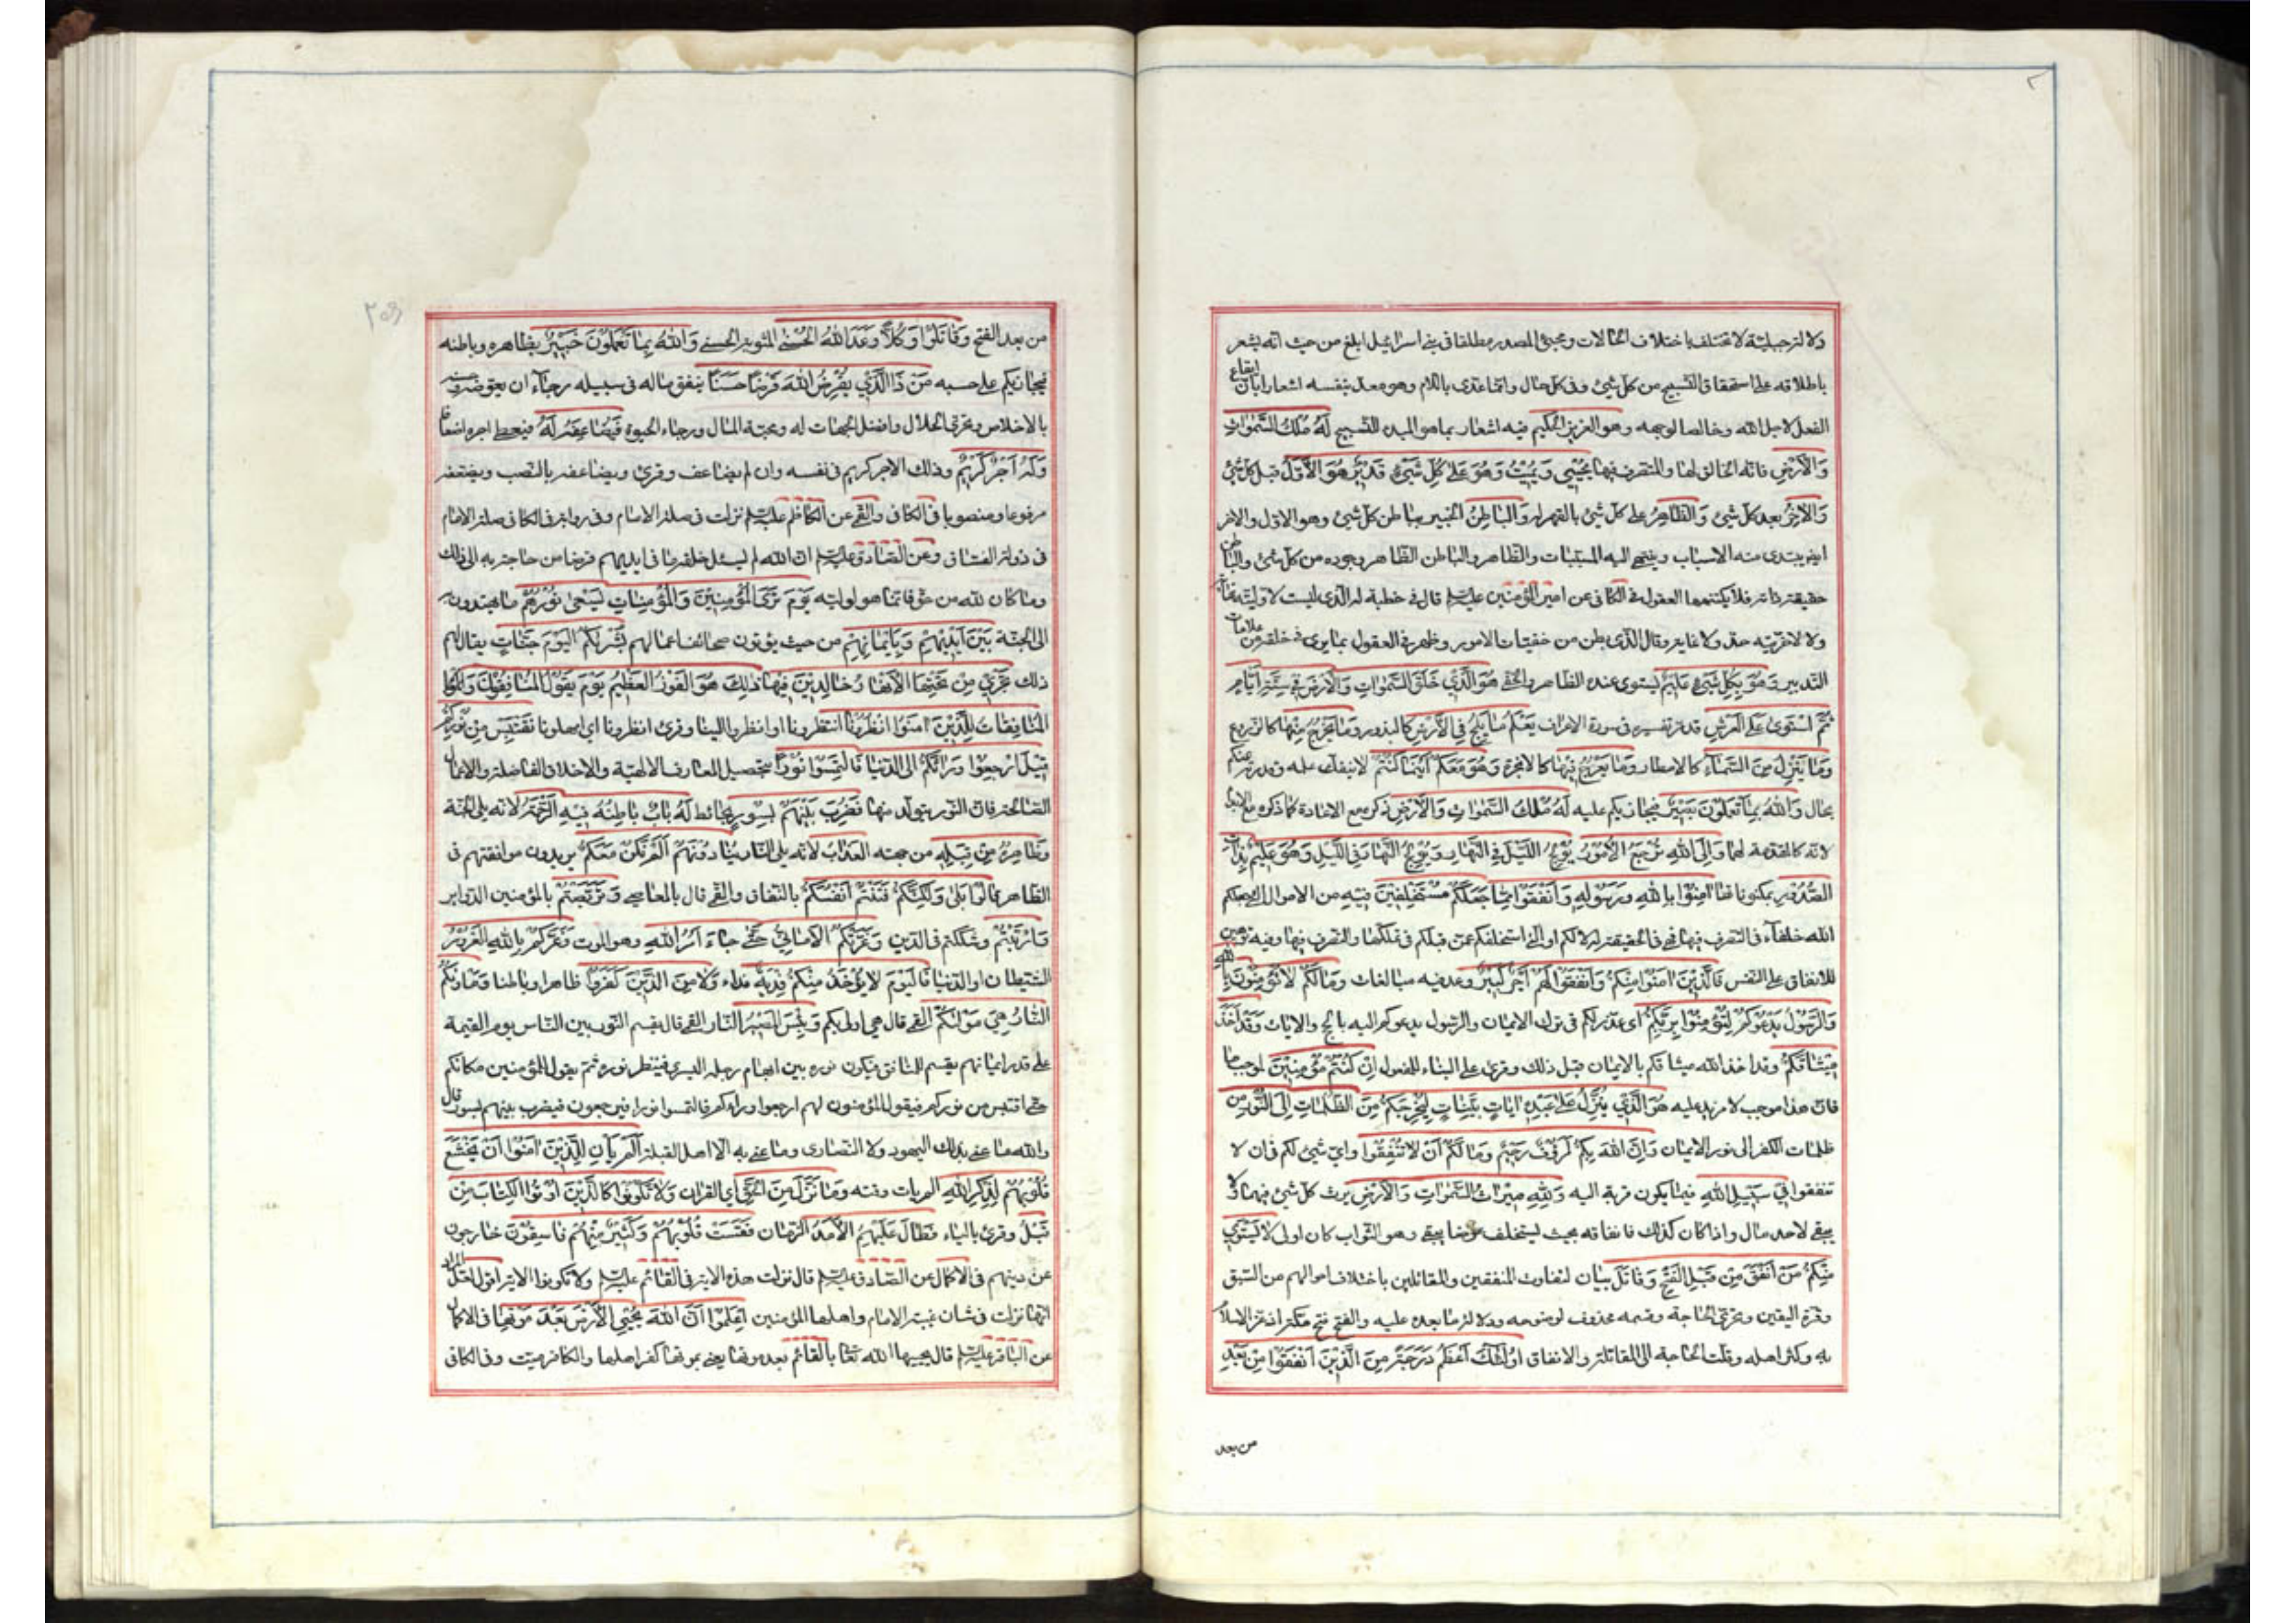 ولا لتر جبلية لا تختلف باختلاف الحالات ومجيئ المصدر مطلقا في بني اسرائيل ابلغ من حيث انه يشعر
باطلاقه على استحقاق التسبيح من كل شيئ وفي كل حال وانما عدى باللام وهو معدى بنفسه اشعارا بان ايقاع
الفعل لاجل الله وخالصا لوجهه وهو العزيز الحكيم فيه اشعار بما هو المبدء للتسبيح لَهُ مُلْكُ السَّمٰوَاتِ
وَالْاَرْضِ فانه الخالق لها والمتصرف فيها يُحْيِي وَيُمِيْتُ وَهُوَ عَلٰى كُلِّ شَيْئٍ قَدِيْرٌ هُوَ الْاَوَّلُ قبل كل شيئ
وَالْاٰخِرُ بعد كل شيئ وَالظَّاهِرُ على كل شيئ بالقهر له وَالْبَاطِنُ الخبير بباطن كل شيئ وهو الاول والاخر
ايضا يبتدى منه الاسباب وينتهي اليه المسببات والظاهر والباطن الظاهر وجوده من كل شيئ والباطن
حقيقة ذاته فلا يكتنهها العقول في الكافي عن امير المؤمنين عليه السلم قال في خطبة له الذى ليست لاوليته نهاية
ولا لاخريته حد ولا غاية وقال الذى بطن من خفيات الامور وظهر في العقول بما يرى في خلقه من علامات
التدبير وَهُوَ بِكُلِّ شَيْئٍ عَلِيْمٌ يستوى عنده الظاهر والخفي هُوَ الَّذِيْ خَلَقَ السَّمٰوَاتِ وَالْاَرْضَ فِيْ سِتَّةِ اَيَّامٍ
ثُمَّ اسْتَوٰى عَلَى الْعَرْشِ قد مر تفسيره في سورة الاعراف يَعْلَمُ مَا يَلِجُ فِي الْاَرْضِ كالبذور وَمَا يَخْرُجُ مِنْهَا كالزروع
وَمَا يَنْزِلُ مِنَ السَّمَآءِ كالامطار وَمَا يَعْرُجُ فِيْهَا كالابخرة وَهُوَ مَعَكُمْ اَيْنَمَا كُنْتُمْ لا ينفك علمه وقدرته عنكم
بحال وَاللهُ بِمَا تَعْمَلُوْنَ بَصِيْرٌ فيجازيكم عليه لَهُ مُلْكُ السَّمٰوَاتِ وَالْاَرْضِ ذكره مع الاعادة كما ذكره مع الابداء
لانه كالمقدمة لهما وَاِلَى اللهِ تُرْجَعُ الْاُمُوْرُ يُوْلِجُ اللَّيْلَ فِي النَّهَارِ وَيُوْلِجُ النَّهَارَ فِي اللَّيْلِ وَهُوَ عَلِيْمٌ بِذَاتِ
الصُّدُوْرِ بمكنوناتها اٰمِنُوْا بِاللهِ وَرَسُوْلِهِ وَاَنْفِقُوْا مِمَّا جَعَلَكُمْ مُسْتَخْلَفِيْنَ فِيْهِ من الاموال التي جعلكم
الله خلفآء في التصرف فيها فهي في الحقيقة له لا لكم او التي استخلفكم عمن قبلكم في تملكها والتصرف فيها وفيه توهين
للانفاق على النفس فَالَّذِيْنَ اٰمَنُوْا مِنْكُمْ وَاَنْفَقُوْا لَهُمْ اَجْرٌ كَبِيْرٌ وعد فيه مبالغات وَمَا لَكُمْ لَا تُؤْمِنُوْنَ بِاللهِ
وَالرَّسُوْلُ يَدْعُوْكُمْ لِتُؤْمِنُوْا بِرَبِّكُمْ اى عذر لكم في ترك الايمان والرسول يدعوكم اليه بالحجج والايات وَقَدْ اَخَذَ
مِيْثَاقَكُمْ وقد اخذ الله ميثاقكم بالايمان قبل ذلك وقرئ على البناء للمفعول اِنْ كُنْتُمْ مُؤْمِنِيْنَ لموجب ما
فان هذا موجب لا مزيد عليه هُوَ الَّذِيْ يُنَزِّلُ عَلٰى عَبْدِهِ اٰيَاتٍ بَيِّنَاتٍ لِيُخْرِجَكُمْ مِنَ الظُّلُمَاتِ اِلَى النُّوْرِ من
ظلمات الكفر الى نور الايمان وَاِنَّ اللهَ بِكُمْ لَرَؤُفٌ رَحِيْمٌ وَمَا لَكُمْ اَنْ لَا تُنْفِقُوْا واي شيئ لكم في ان لا
تنفقوا فِيْ سَبِيْلِ اللهِ فيما يكون قربة اليه وَلِلّٰهِ مِيْرَاثُ السَّمٰوَاتِ وَالْاَرْضِ يرث كل شيئ فيهما ولا
يبقى لاحد مال واذا كان كذلك فانفاقه بحيث يستخلف عوضا يبقى وهو الثواب كان اولى لَا يَسْتَوِيْ
مِنْكُمْ مَنْ اَنْفَقَ مِنْ قَبْلِ الْفَتْحِ وَقَاتَلَ بيان لتفاوت المنفقين والمقاتلين باختلاف احوالهم من السبق
وقوة اليقين وتحري الحاجة وقسمه محذوف لوضوحه ودلالة ما بعده عليه والفتح فتح مكة اذ عز الاسلام
به وكثر اهله وقلت الحاجة الى المقاتلة والانفاق اُولٰئِكَ اَعْظَمُ دَرَجَةً مِنَ الَّذِيْنَ اَنْفَقُوْا مِنْ بَعْدِ
من بعد
من بعد الفتح وَقَاتَلُوْا وَكُلًّا وَعَدَ اللهُ الْحُسْنٰى المثوبة الحسنى وَاللهُ بِمَا تَعْمَلُوْنَ خَبِيْرٌ بظاهره وباطنه
فيجازيكم على حسبه مَنْ ذَا الَّذِيْ يُقْرِضُ اللهَ قَرْضًا حَسَنًا ينفق ماله في سبيله رجآء ان يعوضه
بالاخلاص وتحري الحلال وافضل الجهات له ومحبة المال ورجاء الحيوة فَيُضَاعِفَهُ لَهُ فيعطي اجره اضعافا
وَلَهُ اَجْرٌ كَرِيْمٌ وذلك الاجر كريم في نفسه وان لم يضاعف وقرئ ويضاعفه بالنصب ويضعفه
مرفوعا ومنصوبا في الكافي والقمي عن الكاظم عليه السلم نزلت في صلة الامام وفي رواية في الكافي صلة الامام
في دولة الفساق وعن الصادق عليه السلم ان الله لم يسئل خلقه مما في ايديهم قرضا من حاجة به الى ذلك
وما كان لله من حق فانما هو لوليه يَوْمَ تَرَى الْمُؤْمِنِيْنَ وَالْمُؤْمِنَاتِ يَسْعٰى نُوْرُهُمْ ما يهتدون به
الى الجنة بَيْنَ اَيْدِيْهِمْ وَبِاَيْمَانِهِمْ من حيث يؤتون صحائف اعمالهم بُشْرٰيكُمُ الْيَوْمَ جَنَّاتٌ يقال لهم
ذلك تَجْرِيْ مِنْ تَحْتِهَا الْاَنْهَارُ خَالِدِيْنَ فِيْهَا ذٰلِكَ هُوَ الْفَوْزُ الْعَظِيْمُ يَوْمَ يَقُوْلُ الْمُنَافِقُوْنَ وَ
الْمُنَافِقَاتُ لِلَّذِيْنَ اٰمَنُوْا انْظُرُوْنَا انتظرونا او انظروا الينا وقرئ انظرونا اي امهلونا نَقْتَبِسْ مِنْ نُوْرِكُمْ
قِيْلَ ارْجِعُوْا وَرَائَكُمْ الى الدنيا فَالْتَمِسُوْا نُوْرًا بتحصيل المعارف الالهية والاخلاق الفاضلة والاعمال
الصالحة فان النور يتولد منها فَضُرِبَ بَيْنَهُمْ بِسُوْرٍ بحائط لَهُ بَابٌ بَاطِنُهُ فِيْهِ الرَّحْمَةُ لانه يلي الجنة
وَظَاهِرُهُ مِنْ قِبَلِهِ من جهته الْعَذَابُ لانه يلي النار يُنَادُوْنَهُمْ اَلَمْ نَكُنْ مَعَكُمْ يريدون موافقتهم في
الظاهر قَالُوْا بَلٰى وَلٰكِنَّكُمْ فَتَنْتُمْ اَنْفُسَكُمْ بالنفاق والقمي قال بالمعاصي وَتَرَبَّصْتُمْ بالمؤمنين الدوائر
وَارْتَبْتُمْ وشككتم في الدين وَغَرَّتْكُمُ الْاَمَانِيُّ حَتّٰى جَاءَ اَمْرُ اللهِ وهو الموت وَغَرَّكُمْ بِاللهِ الْغَرُوْرُ
الشيطان او الدنيا فَالْيَوْمَ لَا يُؤْخَذُ مِنْكُمْ فِدْيَةٌ فداء وَلَا مِنَ الَّذِيْنَ كَفَرُوْا ظاهرا وباطنا وَمَاْوٰيكُمُ
النَّارُ هِيَ مَوْلٰيكُمْ القمي قال هي اولى بكم وَبِئْسَ الْمَصِيْرُ النار القمي قال يقسم النور بين الناس يوم القيمة
على قدر ايمانهم يقسم للمنافق فيكون نوره بين ابهام رجله اليسرى فينظر نوره ثم يقول للمؤمنين مكانكم
حتى اقتبس من نوركم فيقول المؤمنون لهم ارجعوا وراءكم فالتمسوا نورا فيرجعون فيضرب بينهم بسور قال
والله ما عنى بذلك اليهود ولا النصارى وما عنى به الا اهل القبلة اَلَمْ يَاْنِ لِلَّذِيْنَ اٰمَنُوْا اَنْ تَخْشَعَ
قُلُوْبُهُمْ لِذِكْرِ اللهِ الم يات وقته وَمَا نَزَلَ مِنَ الْحَقِّ اي القران وَلَا تَكُوْنُوْا كَالَّذِيْنَ اُوْتُوا الْكِتَابَ مِنْ
قَبْلُ وقرئ بالتاء فَطَالَ عَلَيْهِمُ الْاَمَدُ الزمان فَقَسَتْ قُلُوْبُهُمْ وَكَثِيْرٌ مِنْهُمْ فَاسِقُوْنَ خارجون
عن دينهم في الاكمال عن الصادق عليه السلم قال نزلت هذه الاية في القائم عليه السلم ولا تكونوا الاية اقول لعل المراد
انها نزلت في شان غيبة الامام واهلها المؤمنين اِعْلَمُوْا اَنَّ اللهَ يُحْيِي الْاَرْضَ بَعْدَ مَوْتِهَا في الاكمال
عن الباقر عليه السلم قال يحييها الله تعالى بالقائم بعد موتها يعني بموتها كفر اهلها والكافر ميت وفي الكافي